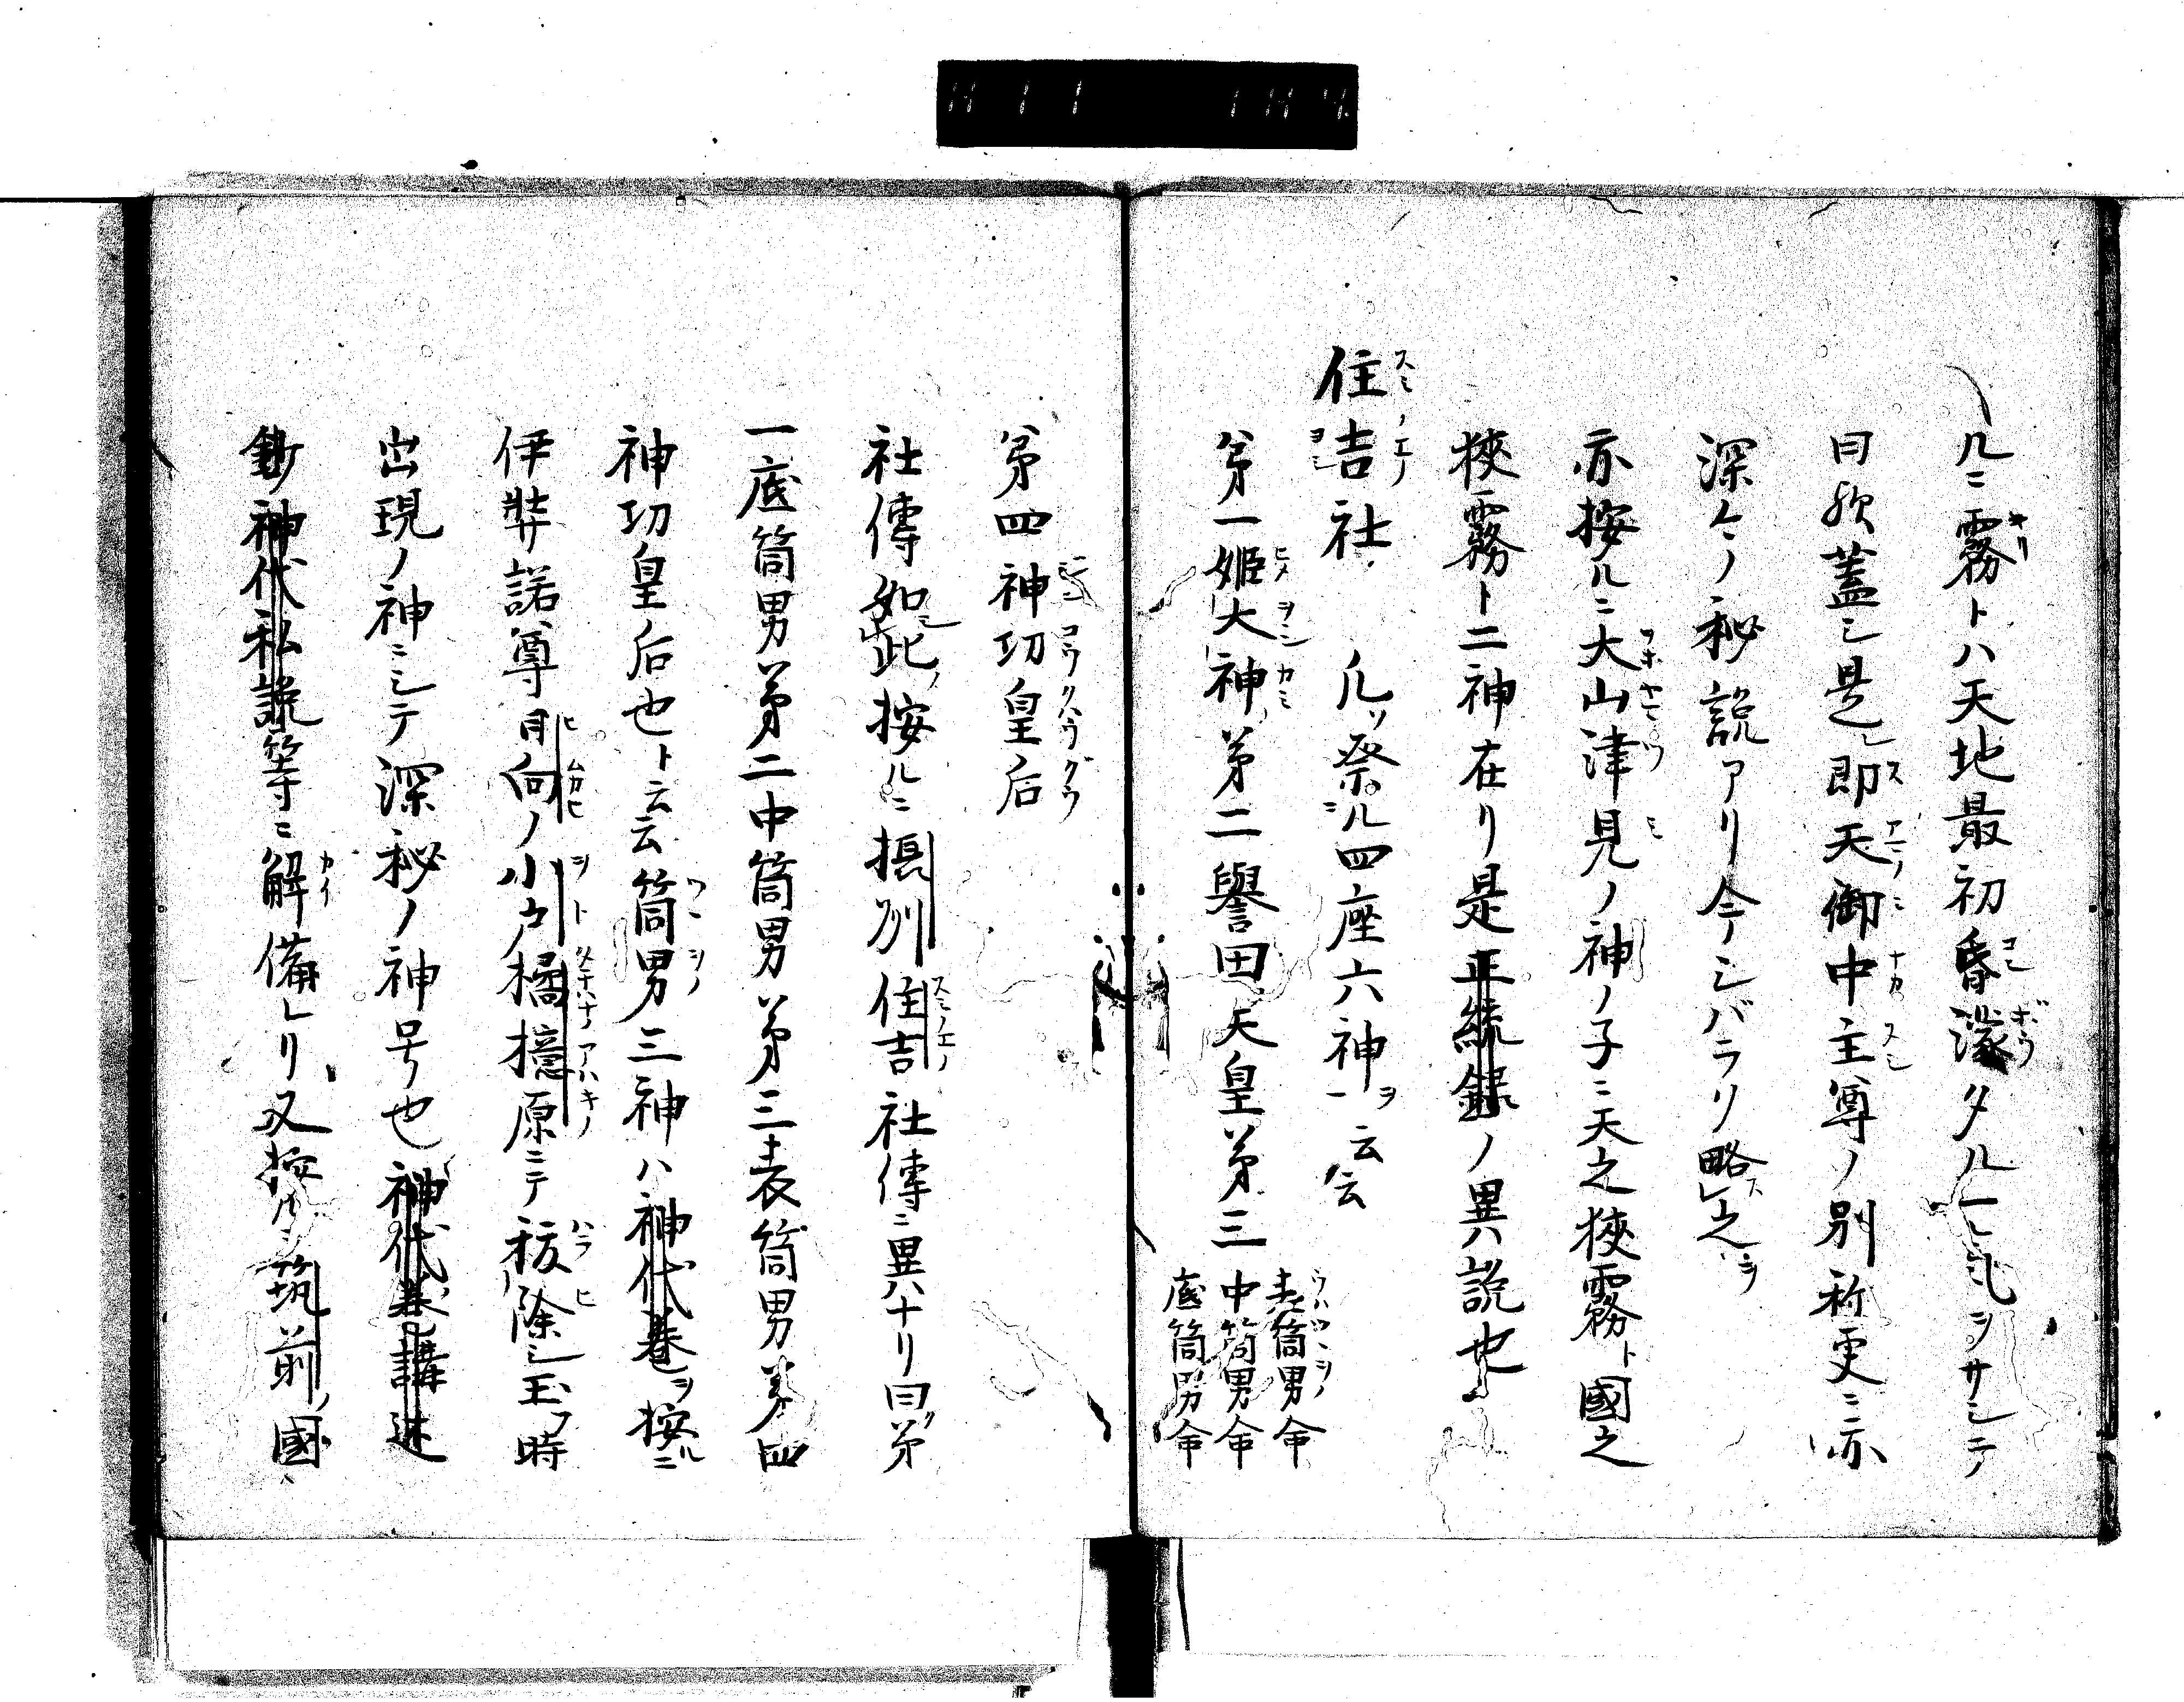 凡ニ霧トハ天地最初昏濛タル一気ヲサシテ
曰欤蓋シ是レ即天御中主尊ノ別称更ニ亦
深ケノ秘説アリ今シバラク略之
亦按ルニ大山津見ノ神ノ子ニ天之狹霧ト國之
狹霧ト二神在リ是正統録ノ異説也
住吉社 凡ソ祭ル四座六神 云云
第一姫大神第二譽田天皇第三 表筒男命 中筒男命 底筒男命
第四神功皇后
社傳如此按ルニ摂州住吉社傳ニ異ナリ曰第
一底筒男第二中筒男第三表筒男第四
神功皇后也ト云云筒男三神ハ神代巻ヲ按ルニ
伊弉諾尊日向ノ小戸橘檍原ニテ秡除シ玉フ時
出現ノ神ニシテ深秘ノ神号也神代巻講述
鈔神代私説等ニ解備レリ又按ルニ筑前ノ國
H 11 1H 4